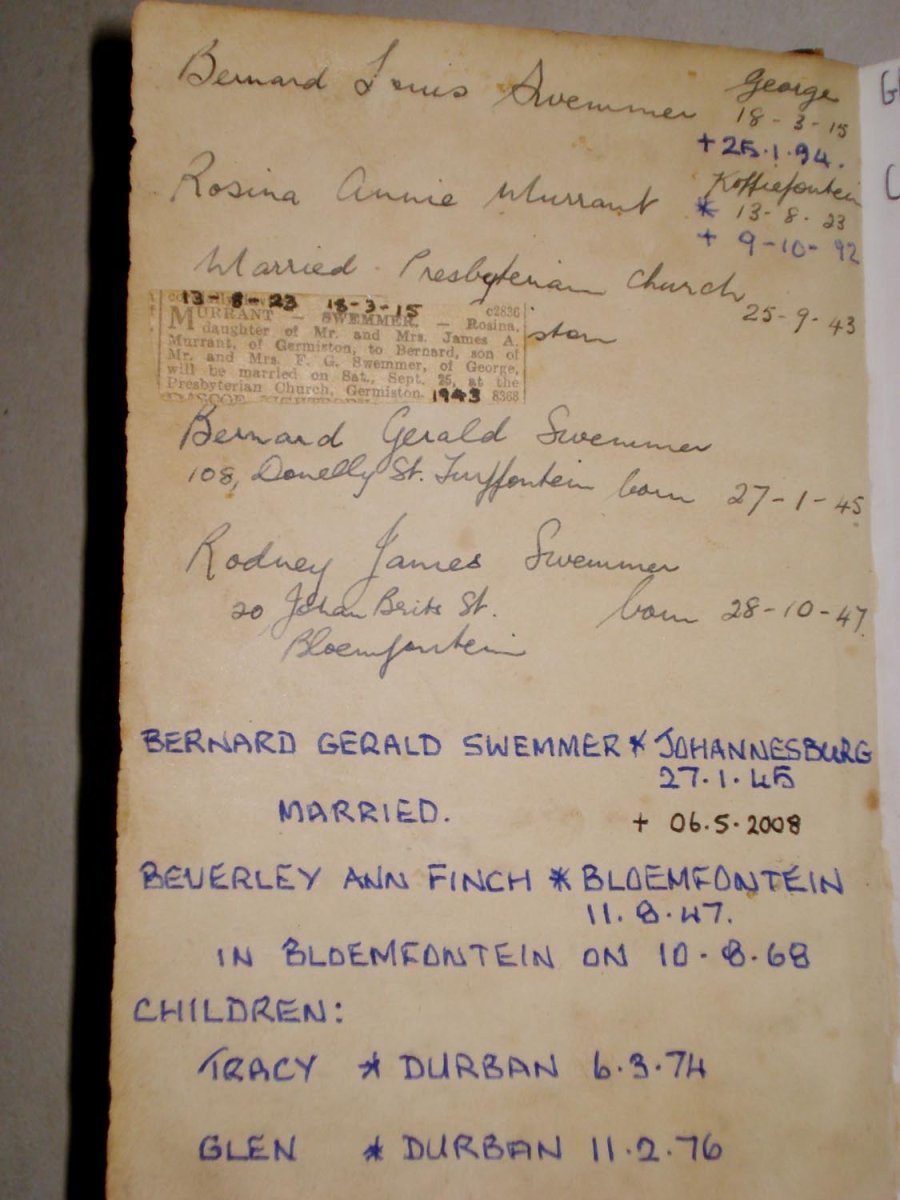 Bernard Louis Swemmer George
18-3-15
+25.1.94.
Rosina Annie Murrant Koffiefontein
* 13-8-23
+ 9-10-92
Married Presbyterian Church
25-9-43
ston
13-8-23 18-3-15
c2836
MURRANT — SWEMMER. — Rosina,
daughter of Mr. and Mrs. James A.
Murrant, of Germiston, to Bernard, son of
Mr. and Mrs. F. G. Swemmer, of George,
will be married on Sat., Sept. 25, at the
Presbyterian Church, Germiston. 1943 8368
Bernard Gerald Swemmer
108, Donelly St. Turffontein born 27-1-45
Rodney James Swemmer
20 Johan Brits St. born 28-10-47.
Bloemfontein
BERNARD GERALD SWEMMER * JOHANNESBURG
27.1.45
MARRIED.
+ 06.5.2008
BEVERLEY ANN FINCH * BLOEMFONTEIN
11.8.47.
IN BLOEMFONTEIN ON 10.8.68
CHILDREN:
TRACY * DURBAN 6.3.74
GLEN * DURBAN 11.2.76